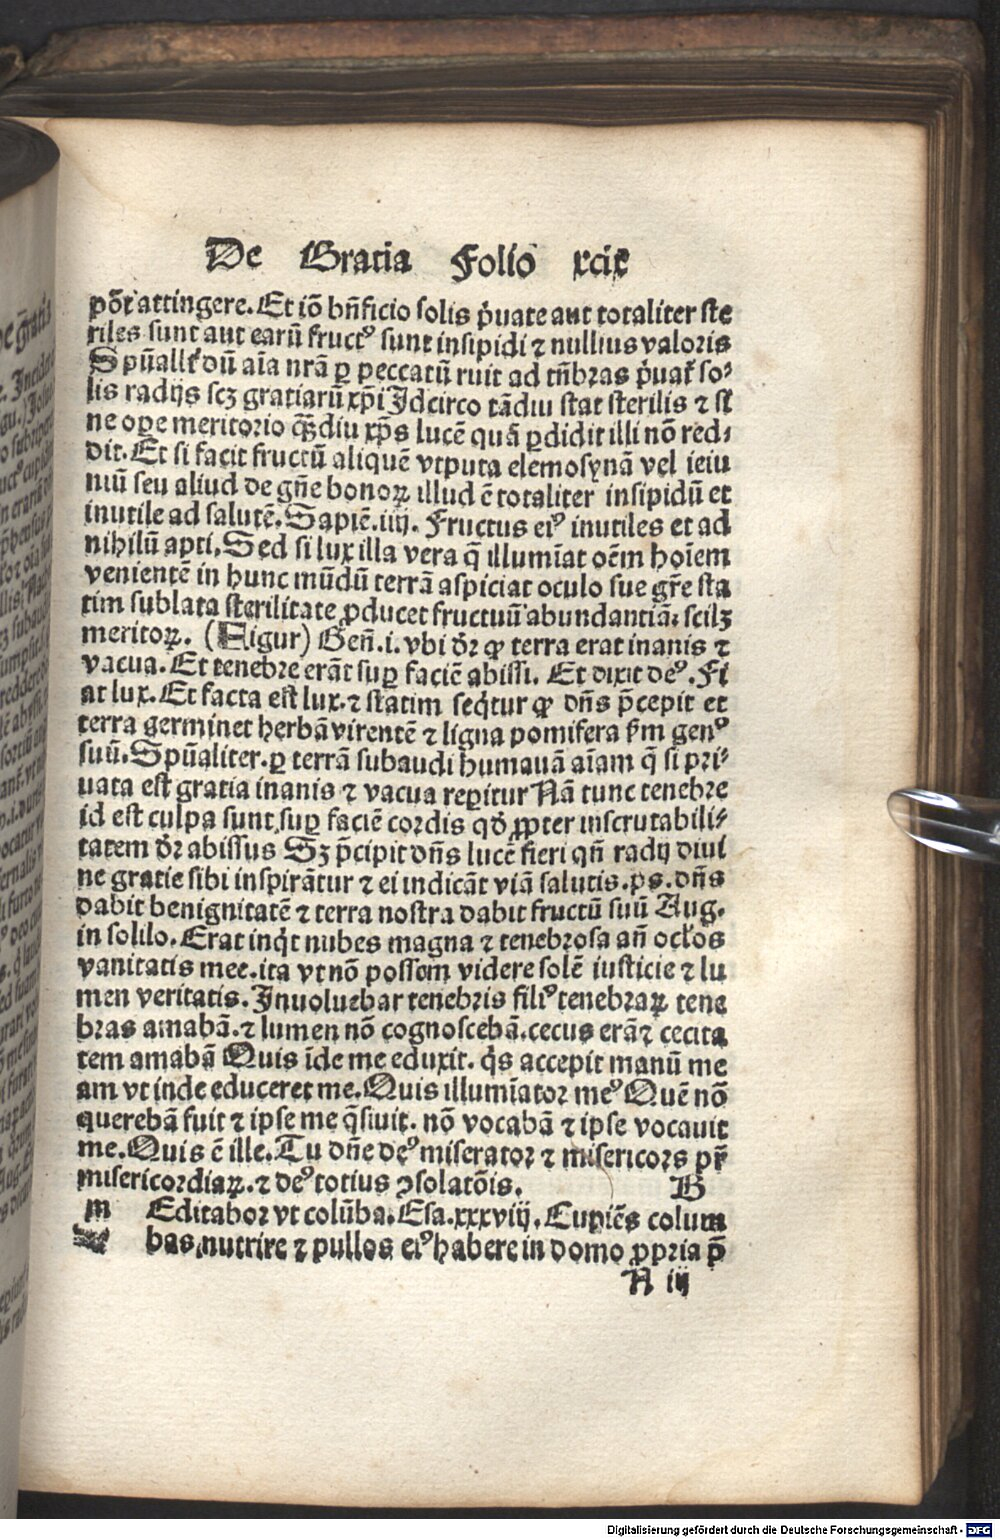 De Gratia Folio xcix
põt attingere. Et iõ bñficio solis p̃uate aut totaliter ste
riles sunt aut earũ fructꝰ sunt insipidi ⁊ nullius valoris
Spũalit̃ dũ aĩa nrã ꝑ peccatũ ruit ad tñbras p̃uat̃ so⸗
lis radijs scꝫ gratiarũ xp̃i Idcirco tãdiu stat sterilis ⁊ si
ne oꝑe meritorio q̃ꝫdiu xp̃s lucẽ quã ꝑdidit illi nõ red⸗
dit. Et si facit fructũ aliquẽ vtputa elemosynã vel ieiu
niũ seu aliud de gñe bonoꝝ illud ẽ totaliter insipidũ et
inutile ad salutẽ. Sapiẽ. iiij. Fructus eiꝰ inutiles et ad
nihilũ apti. Sed si lux illa vera q̃ illumĩat oẽm hoĩem
venientẽ in hunc mũdũ terrã aspiciat oculo sue gr̃e sta
tim sublata sterilitate ꝓducet fructuũ abundantiã: scilꝫ
meritoꝝ. (Figur) Geñ. i. vbi dr̃ ꝙ terra erat inanis ⁊
vacua. Et tenebre erãt suꝑ faciẽ abissi. Et dixit deꝰ. Fi
at lux. Et facta est lux. ⁊ statim seq̃tur ꝙ dñs p̃cepit et
terra germinet herbã virentẽ ⁊ ligna pomifera sm̃ genꝰ
suũ. Spũaliter. ꝑ terrã subaudi humauã aĩam q̃ si pri⸗
uata est gratia inanis ⁊ vacua reꝑitur Nã tunc tenebre
id est culpa sunt suꝑ faciẽ cordis qd̃ ꝓpter inscrutabili⸗
tatem dr̃ abissus Sꝫ p̃cipit dñs lucẽ fieri qñ radij diui
ne gratie sibi inspirãtur ⁊ ei indicãt viã salutis. ps. dñs
dabit benignitatẽ ⁊ terra nostra dabit fructũ suũ Aug.
in solilo. Erat inq̃t nubes magna ⁊ tenebrosa añ ocl̃os
vanitatis mee. ita vt nõ possem videre solẽ iusticie ⁊ lu
men veritatis. Inuoluebar tenebris filiꝰ tenebraꝝ tene
bras amabã. ⁊ lumen nõ cognoscebã. cecus erã ⁊ cecita
tem amabã Quis ĩde me eduxit. q̃s accepit manũ me
am vt inde educeret me. Quis illumĩator meꝰ Quẽ nõ
querebã fuit ⁊ ipse me q̃siuit. nõ vocabã ⁊ ipse vocauit
me. Quis ẽ ille. Tu dñe deꝰ miserator ⁊ misericors pr̃
misericordiaꝝ. ⁊ deꝰ totius ꝯsolatõis. B
m Editabor vt colũba. Esa. xxxviij. Cupiẽs colum
bas nutrire ⁊ pullos eiꝰ habere in domo ꝓpria p̃
N iij
Digitalisierung gefördert durch die Deutsche Forschungsgemeinschaft - DFG